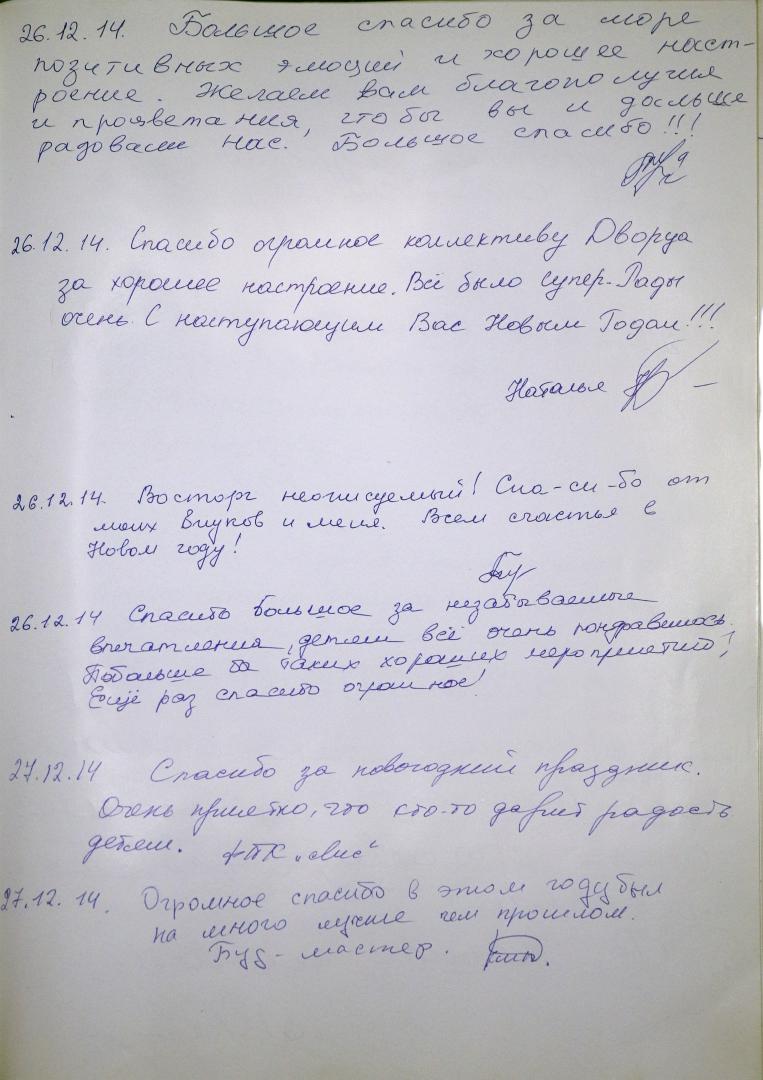 26.12.14. Большое спасибо за море
позитивных эмоций и хорошее наст-
роение. Желаем вам благополучия
и процветания, чтобы вы и дальше
радовали нас. Большое спасибо!!!
26.12.14. Спасибо огромное коллективу Дворца
за хорошее настроение. Всё было супер. Рады
очень. С наступающим Вас Новым Годом!!!
Наталья
26.12.14. Восторг неописуемый! Спа-си-бо от
моих внуков и меня. Всем счастья в
Новом году!
26.12.14 Спасибо большое за незабываемые
впечатления, детям всё очень понравилось.
Побольше бы таких хороших мероприятий!
Ещё раз спасибо огромное!
27.12.14 Спасибо за новогодний праздник.
Очень приятно, что кто-то дарит радость
детям.
27.12.14. Огромное спасибо в этом году был
на много лучше чем прошлом.
Буд-мастер.